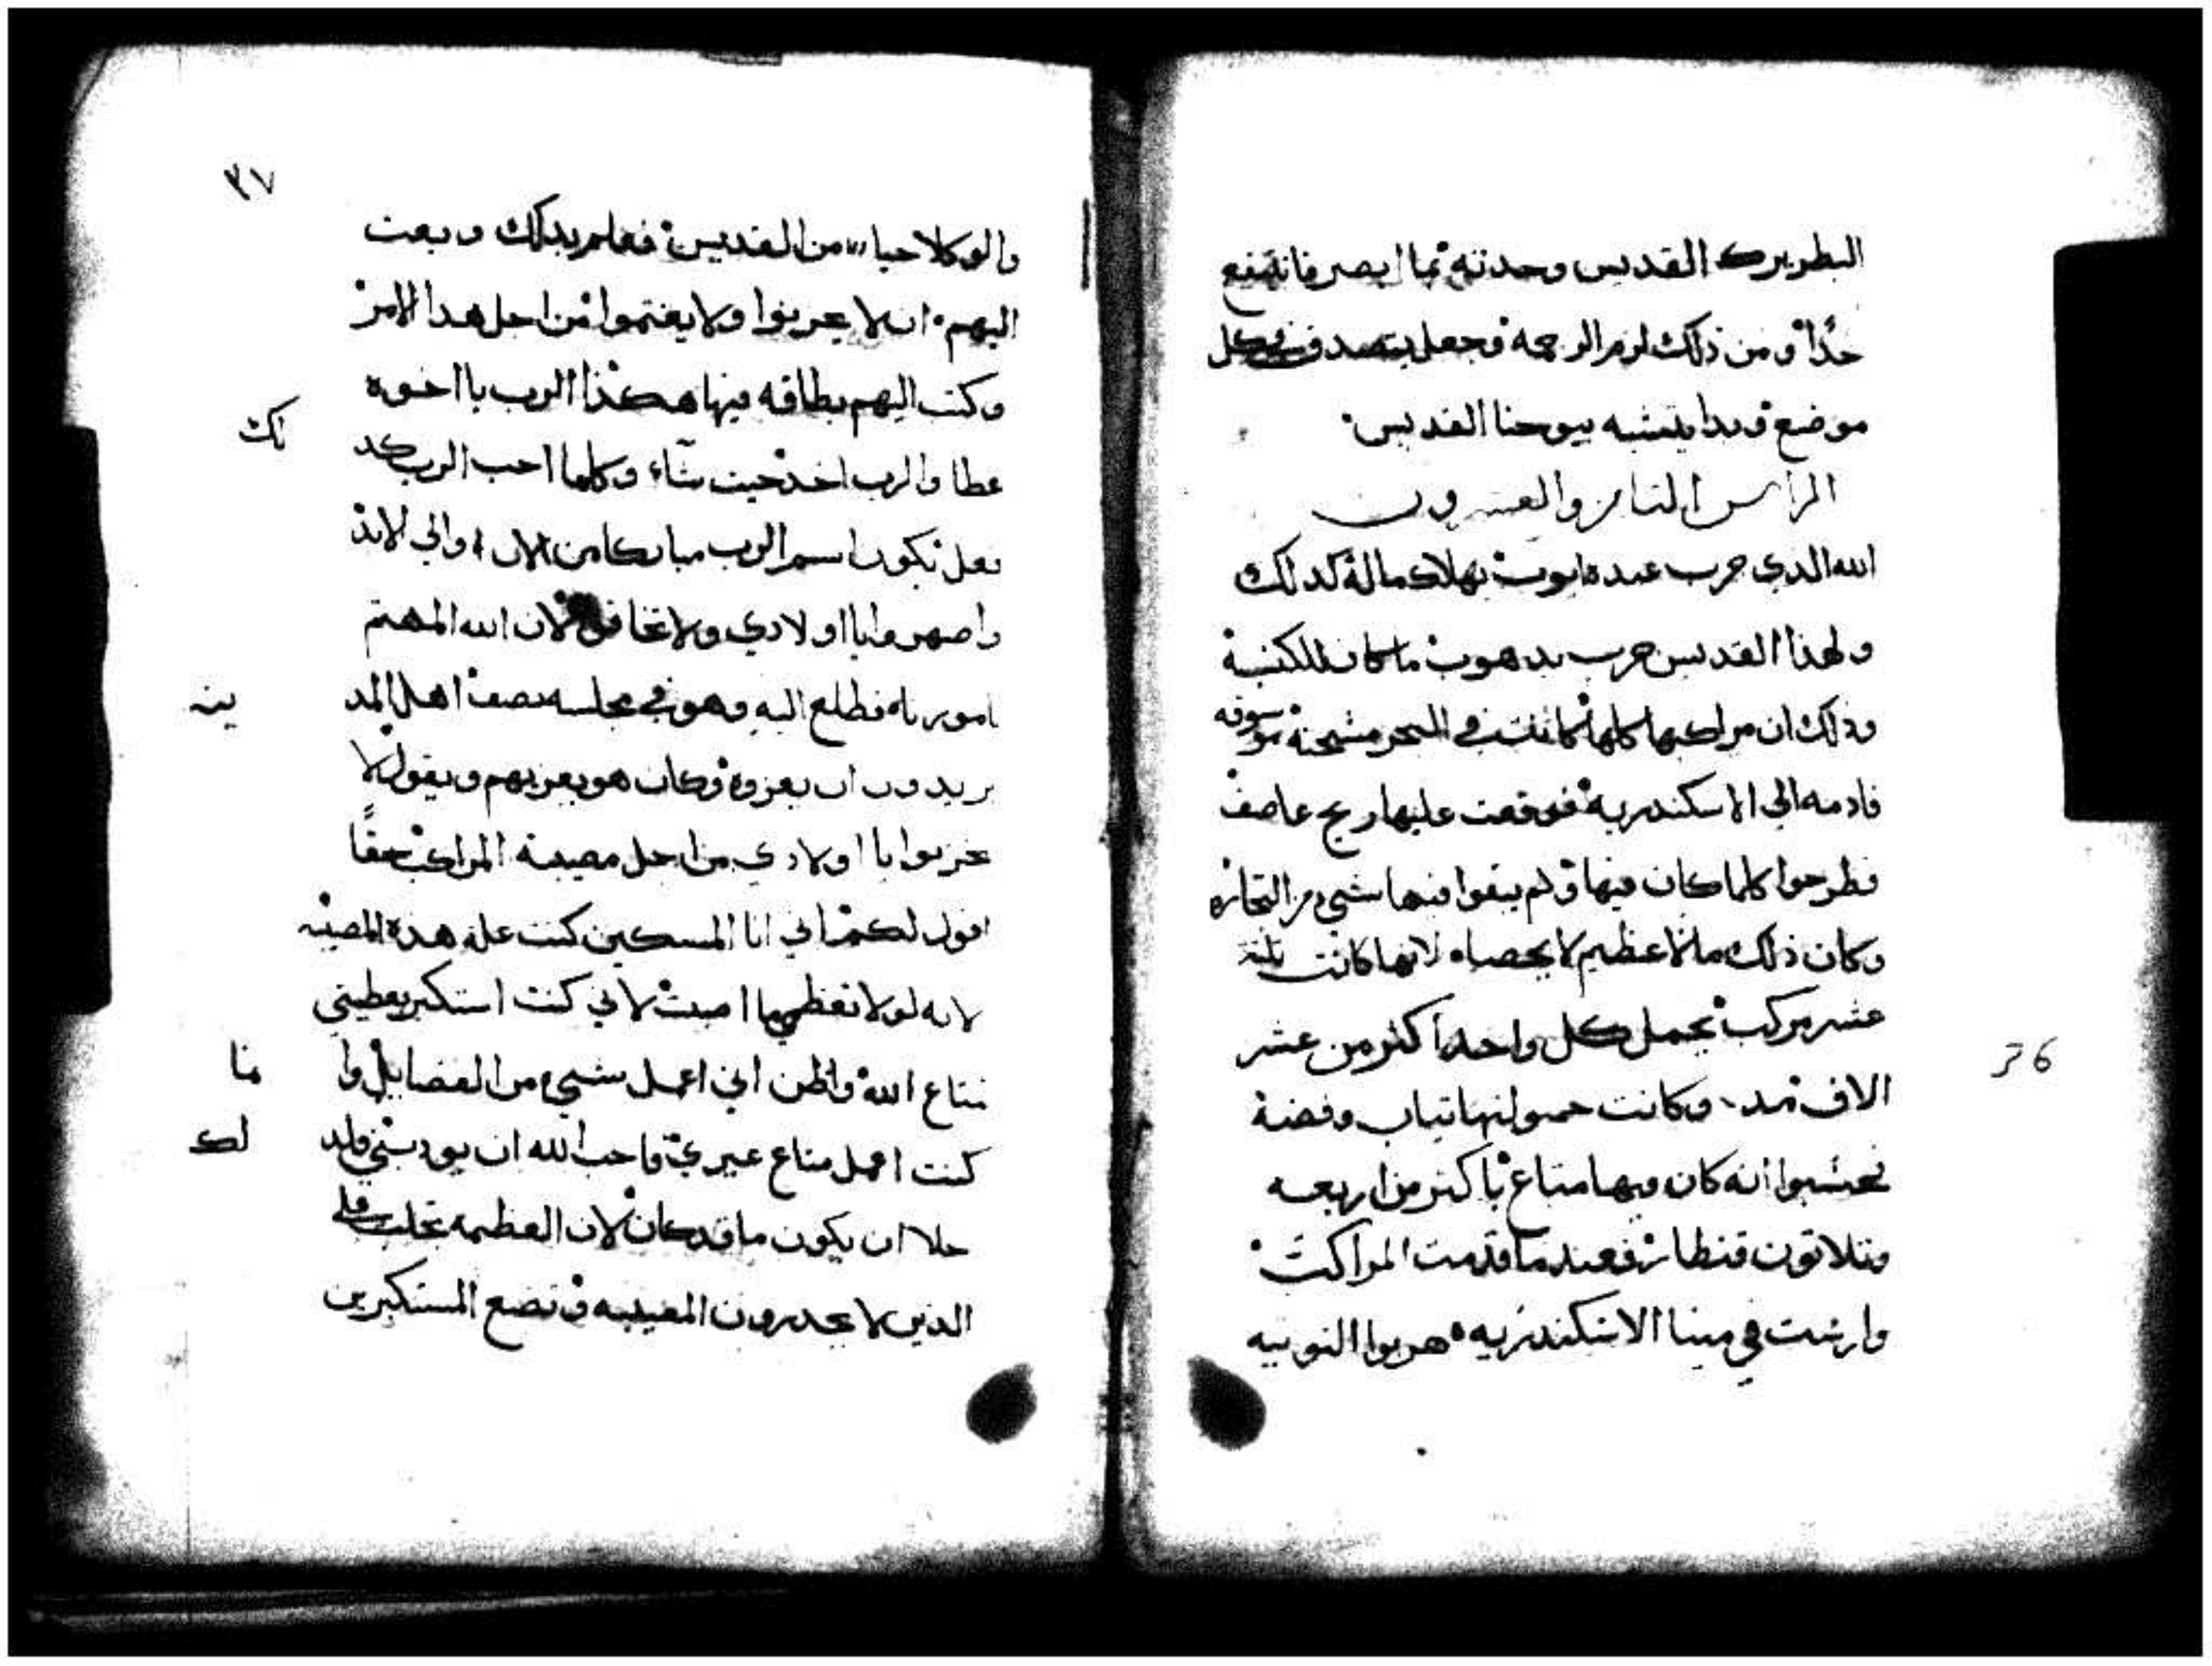 البطريرك القديس وحدثه بما ابصر فانتفع
جدًا ومن ذلك لزم الرحمة وجعل يتصدق في كل
موضع وبدا يتشبه بيوحنا القديس
الرأس الثامن والعشرون
الله الذي جرب عبده ايوب بهلاك ماله كذلك
ولهذا القديس جرب بدهوب ما كان للكنيسة
وذلك ان مراكبها كلها كانت في البحر مشحنة موسوقه
قادمه الى الاسكندرية فوقعت عليها ريح عاصف
فطرحوا كلما كان فيها ولم يبقوا فيها شيء من التجاره
وكان ذلك مالاً عظيم لا يحصاه لانها كانت ثلثة
عشر مركب يحمل كل واحد اكثر من عشر
الاف مد وكانت حمولتها ثياب وفضة
فحسبوا انه كان فيها متاع باكثر من اربعه
وثلاثون قنطار فعندما قدمت المراكب
وارست في مينا الاسكندريه هربوا النوتيه
٣٧
والوكلا حياء من القديس فعلم بذلك وبعت
اليهم ان لا تحزنوا ولا يغتموا من اجل هذا الامر
وكتب اليهم بطاقه فيها هكذا الرب يا اخوه
عطا والرب اخذ حيث شاء وكلما احب الرب كد
لك
فعل يكون اسم الرب مباركا من الان والى الابد
واصبروا يا اولادي ولا تخافوا لان الله المهتم
بامورنا فطلع اليه وهو في مجلسه نصف اهل المد
ينه
يريدون ان يعزوه وكان هو يعزيهم ويقول لا
تحزنوا يا اولادي من اجل مصيبة المراكب حقًا
اقول لكم اني انا المسكين كنت علة هذة المصيبه
لانه لولا تعظمي ما اصبت لاني كنت استكبر بعطيتي
متاع الله واظن اني اعمل شيء من الفضايل وا
نا
كنت اعمل متاع غيري فاحب الله ان يودبني فلد
لك
خلا ان يكون ما قد كان لان العظمه تجلب على
الذين لا يحدرون المغيبه وتضع المستكبرين